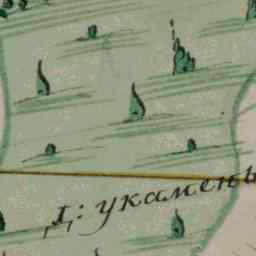 д: укамень